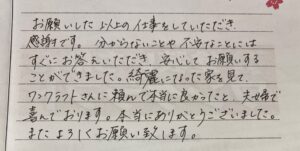 お願いした以上の仕事をしていただき、
感謝です。分からないことや不安なことには
すぐにお答えいただき、安心してお願いする
ことができました。綺麗になった家を見て、
ワンクラフトさんに頼んで本当に良かったと、夫婦で
喜んでおります。本当にありがとうございました。
またよろしくお願い致します。